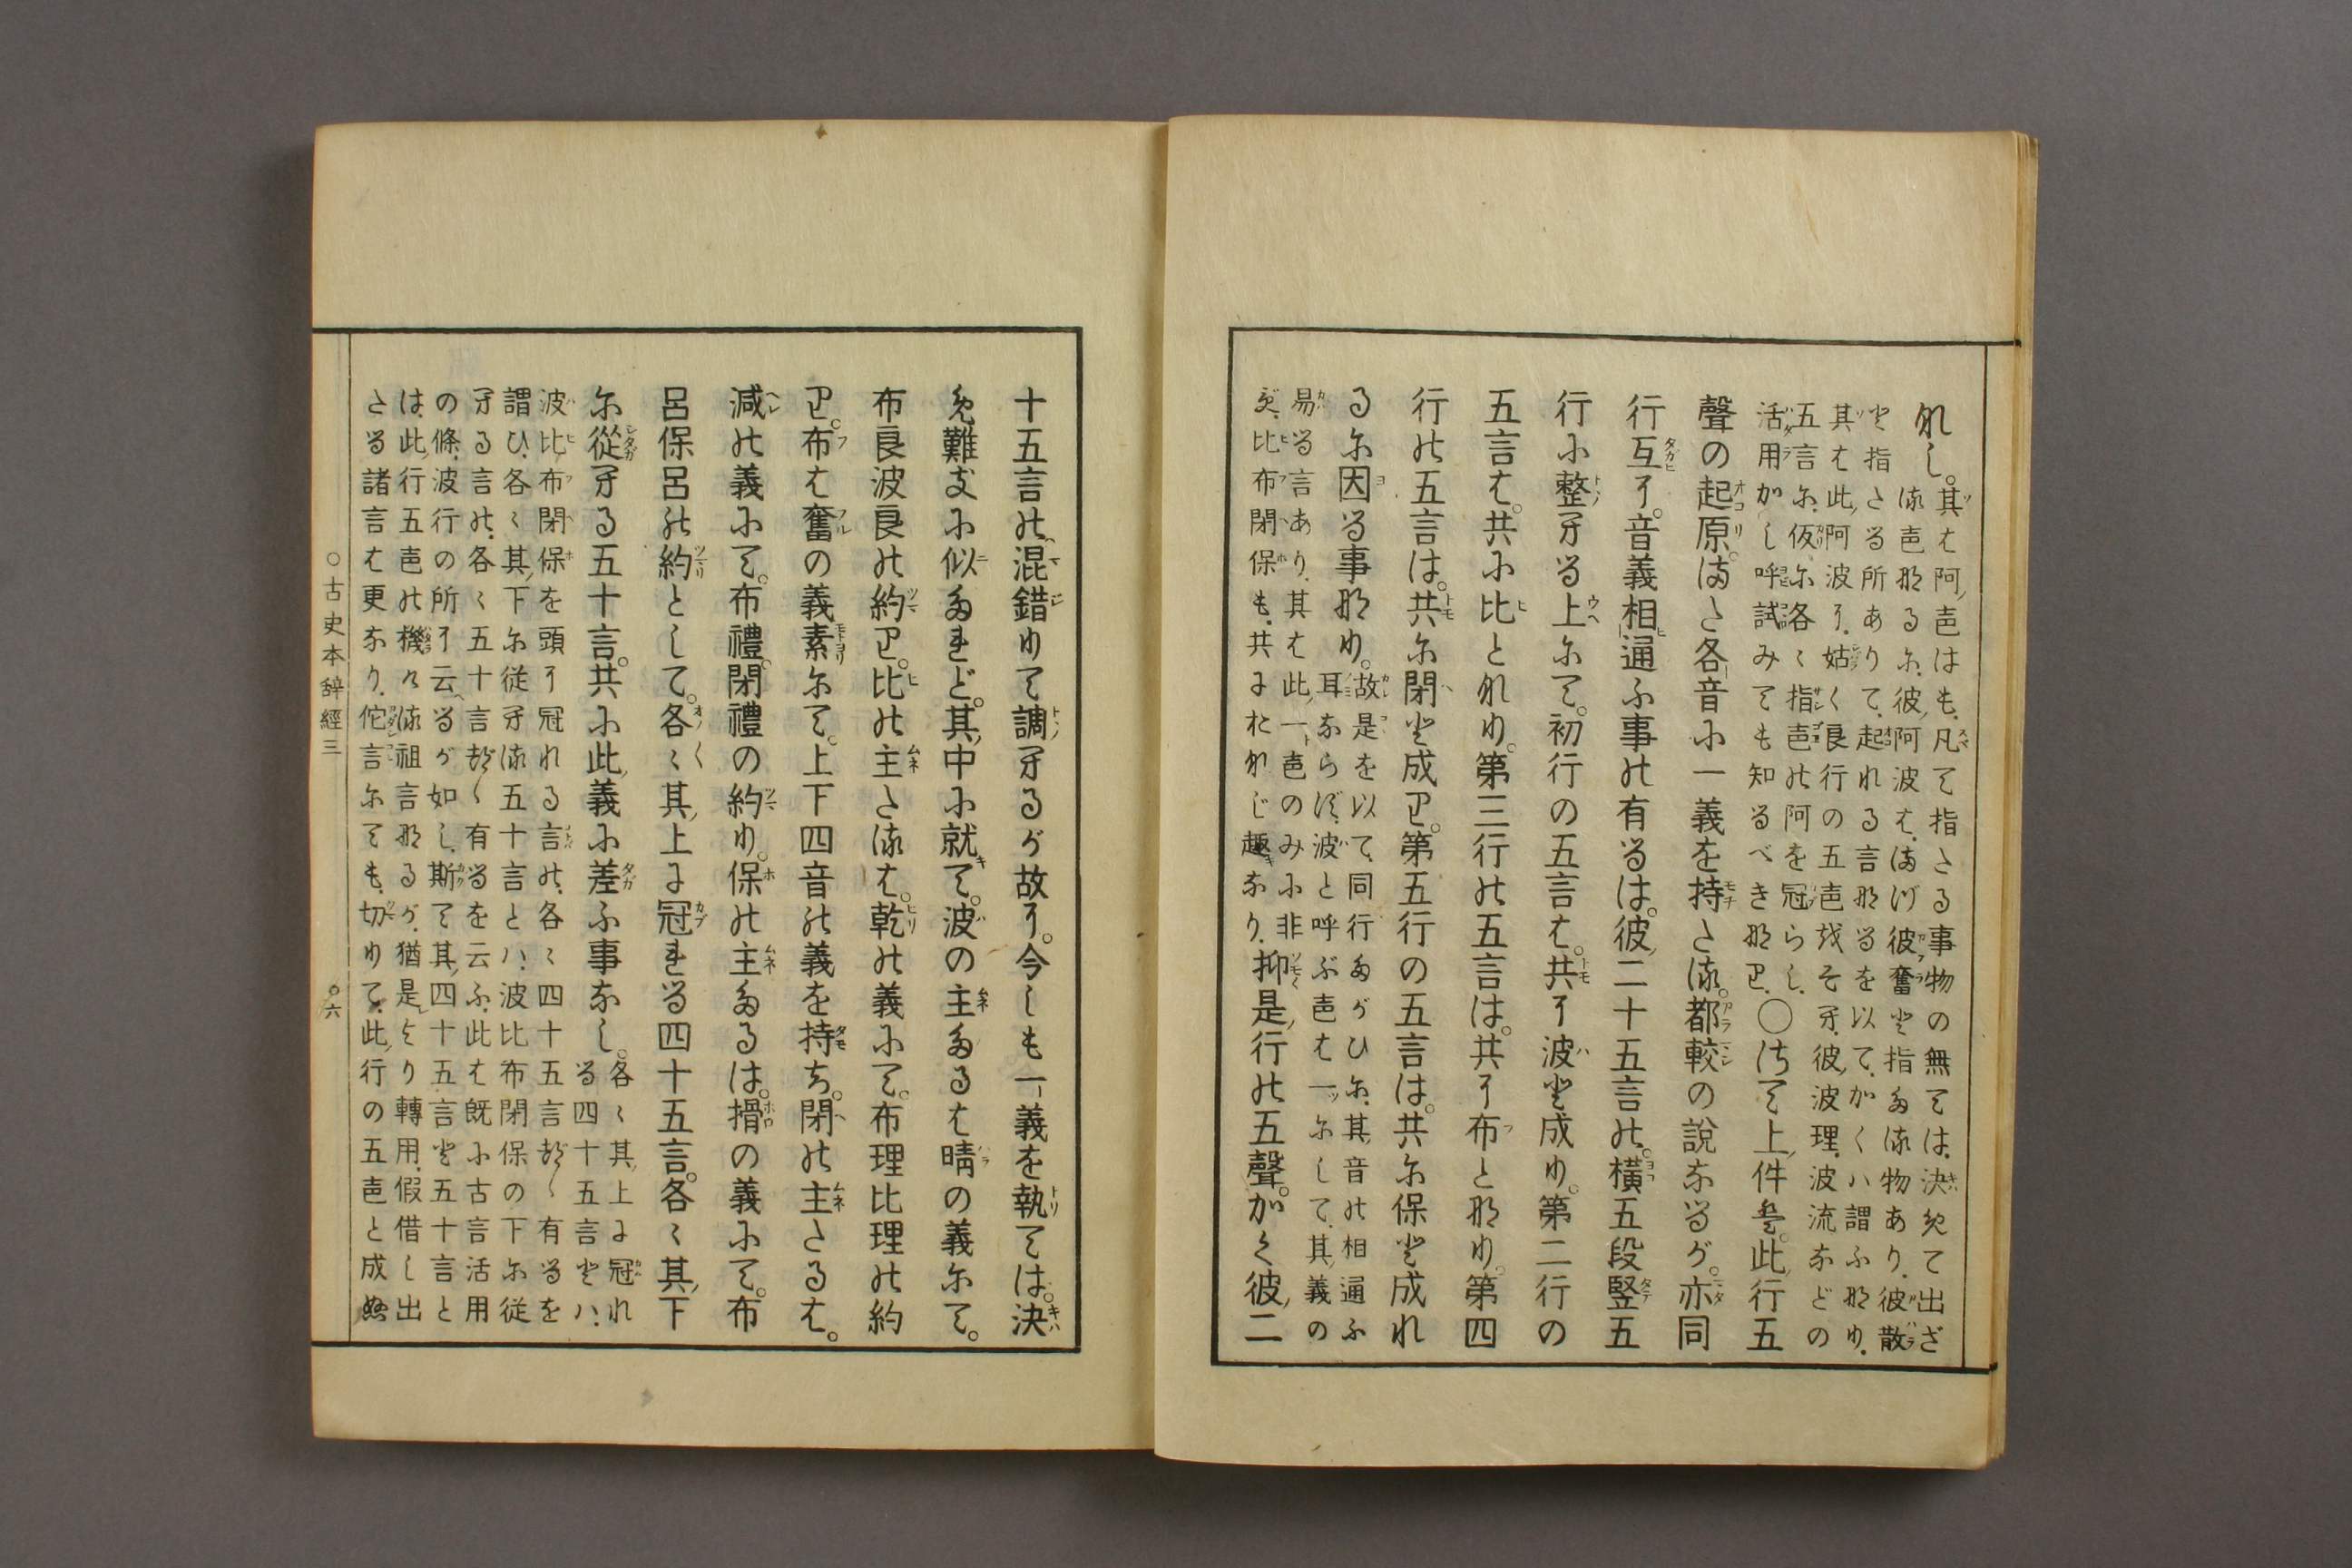 なし。
其は阿声はも、凡て指さる事物の無ては、決めて出ざ
る声なるに、彼阿波は、まづ彼奮と指たる物あり、彼散
と指さる所ありて、起れる言なるを以て、かくハ謂ふなり、
其は此阿波に、姑く良行の五声をそへ、彼波理波流などの
五言に、仮に各〻指声の阿を冠らし、
活用かし呼試みても知るべきなり、
〇さて上件は。此行五
聲の起原。また各音に一義を持たる。都較の説なるが。亦同
行互に。音義相通ふ事の有るは。彼二十五言の。横五段竪五
行に整へる上にて。初行の五言は。共に波と成り。第二行の
五言は。共に比となり。第三行の五言は。共に布となり。第四
行の五言は。共に閉と成り。第五行の五言は。共に保と成れ
るに因る事なり。
故是を以て、同行たがひに、其音の相通ふ
耳ならず、波と呼ぶ声は一ッにして、其義の
易る言あり、其は此一声のみに非
ず、比布閉保も、共におなじ趣なり、
抑是行の五聲。かく彼二
十五言の、混錯りて調へるが故に。今しも一義を執ては。決
め難きに似たれど。其中に就て。波の主たるは晴の義にて。
布良波良の約り。比の主たるは。乾の義にて。布理比理の約
り。布は奮の義素にて。上下四音の義を持ち。閉の主たるは。
減の義にて。布禮閉禮の約り。保の主たるは。搰の義にて。布
呂保呂の約りとして。各〻其上に冠れる四十五言。各〻其下
に從へる五十言。共に此義に差ふ事なし。
各〻其上に冠れ
る四十五言とハ、
波比布閉保を頭に冠れる言の、各〻四十五言都〻有るを
謂ひ、各〻其下に従へる五十言とハ、波比布閉保の下に従
へる言の、各〻五十言都〻有るを云ふ、此は既に古言活用
の條、波行の所に云へるが如し、斯て其四十五言と五十言と
は、此行五声の機〻る祖言なるが、猶是より轉用、假借し出
たる諸言は更なり、佗言にても、切りて、此行の五声と成ぬ
〇古史本辞經三 〇六